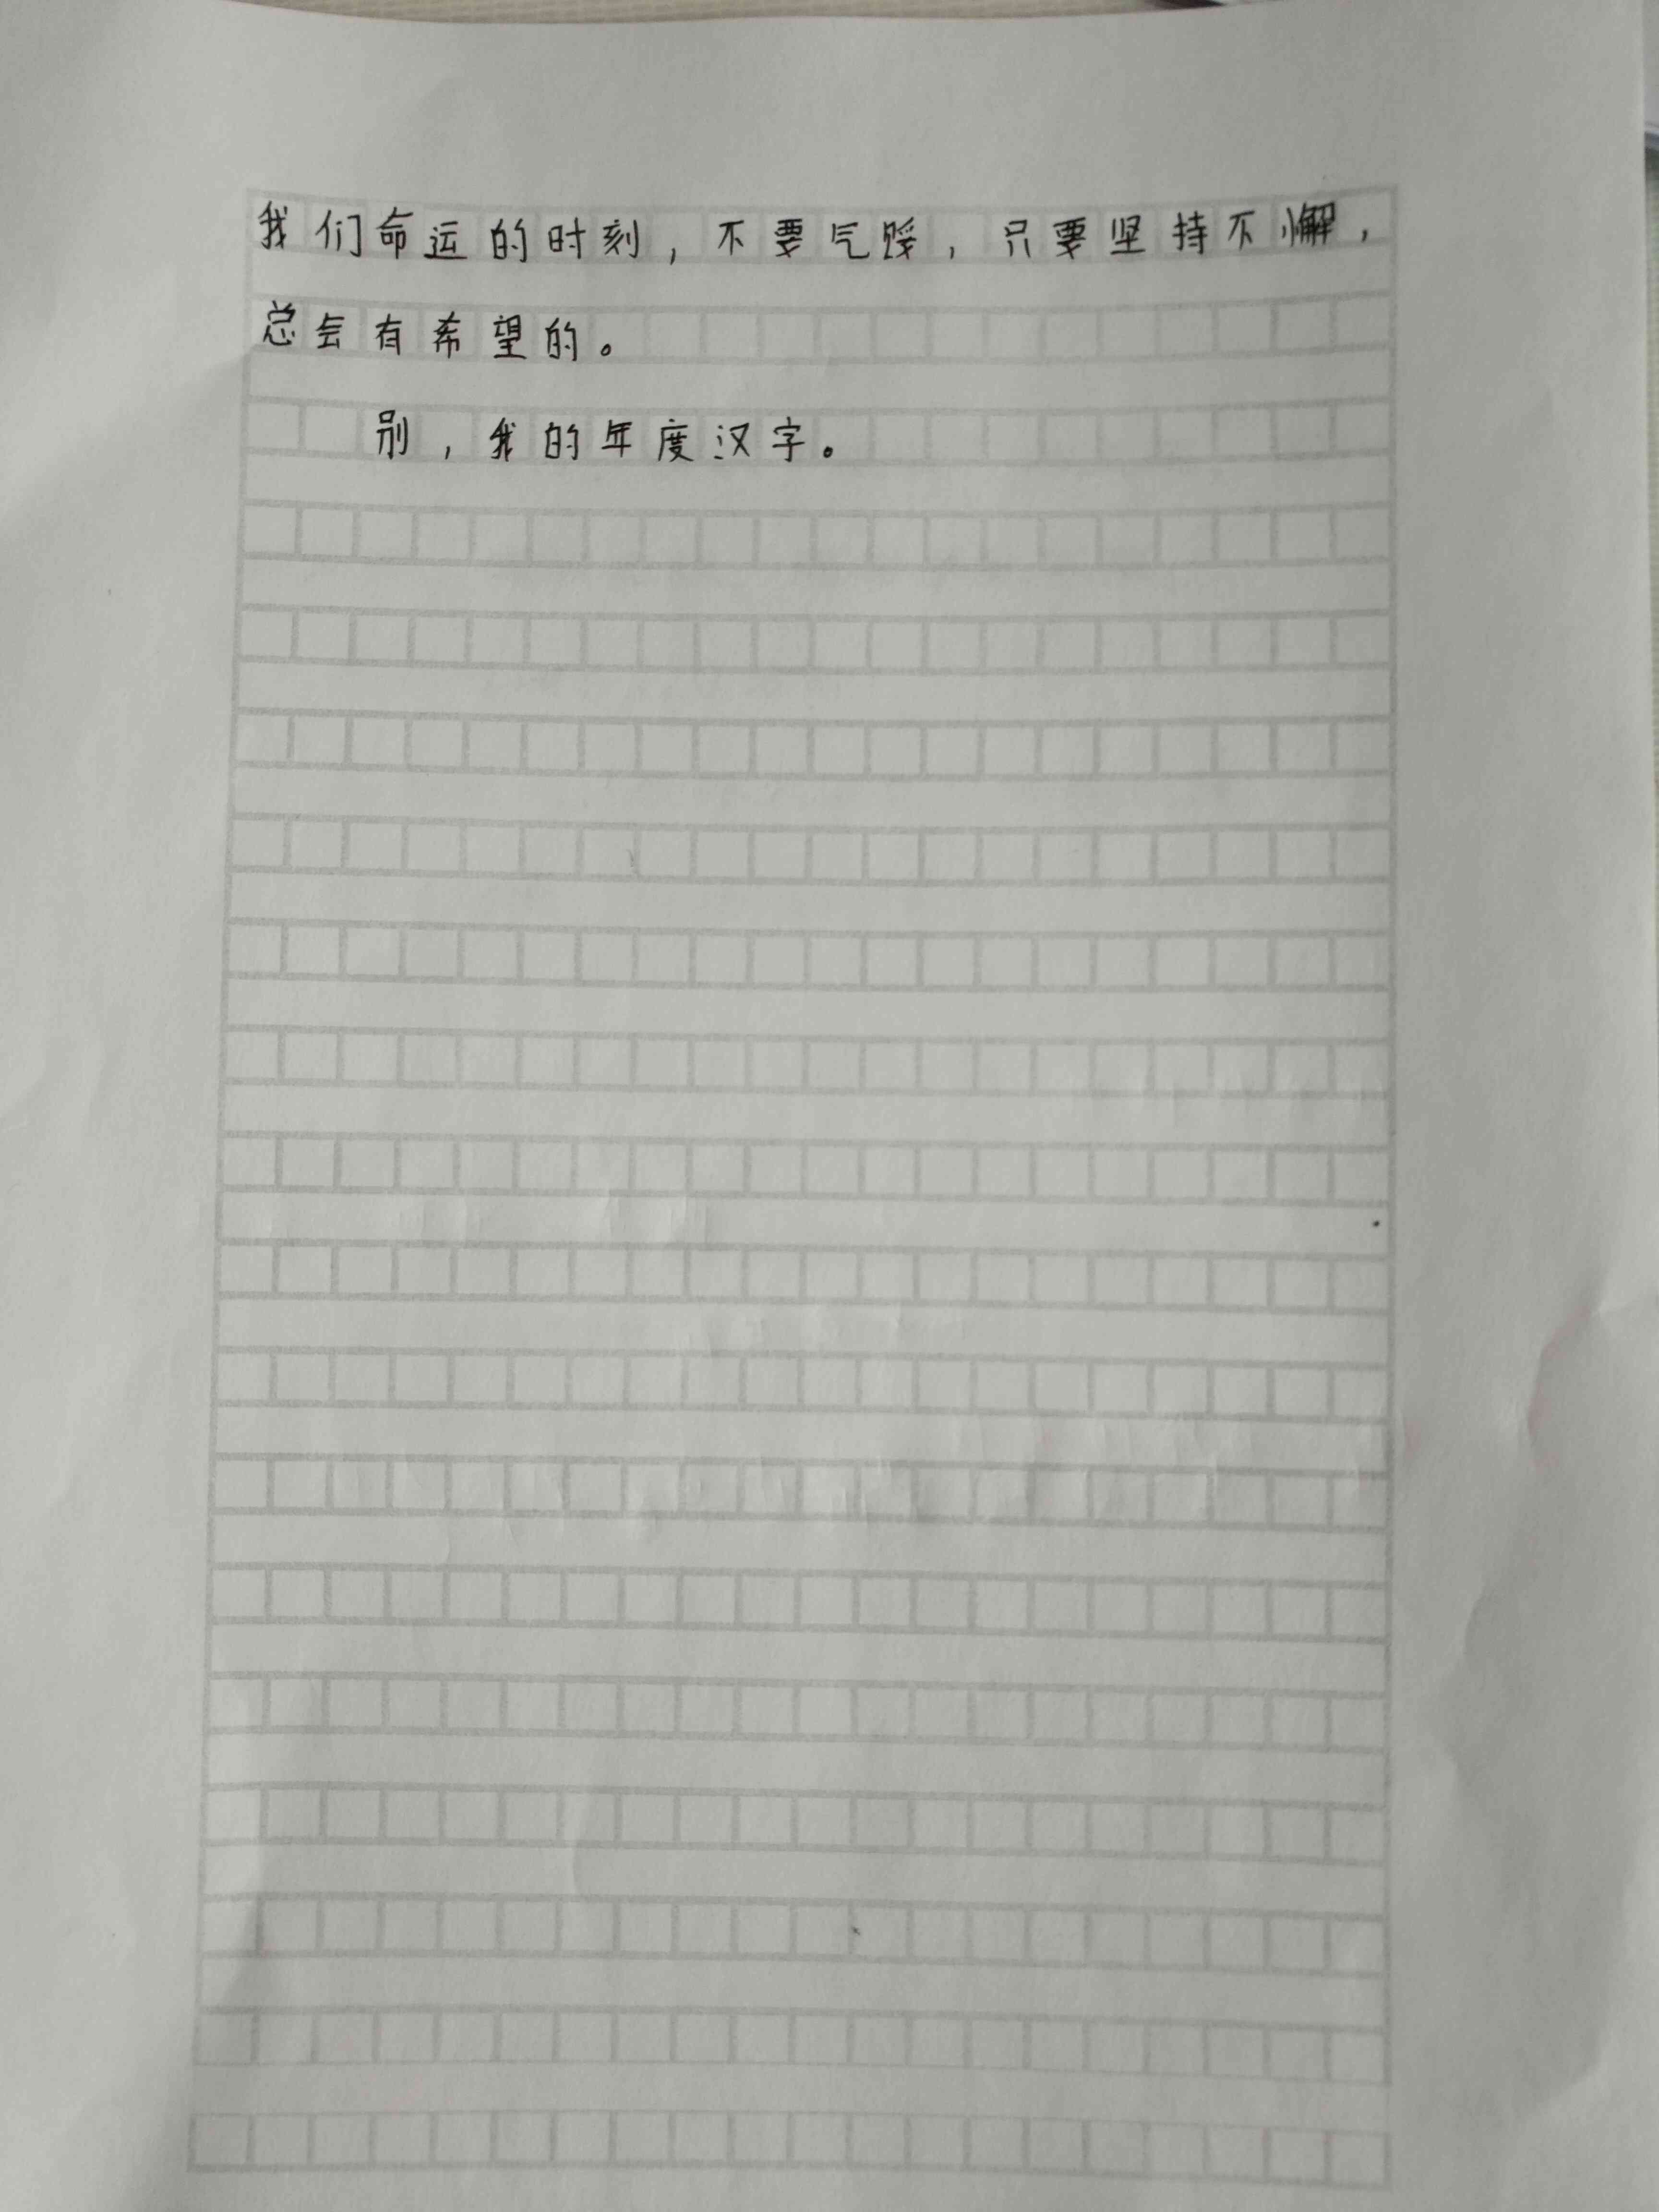 我们命运的时刻，不要气馁，只要坚持不懈，
总会有希望的。
别，我的年度汉字。